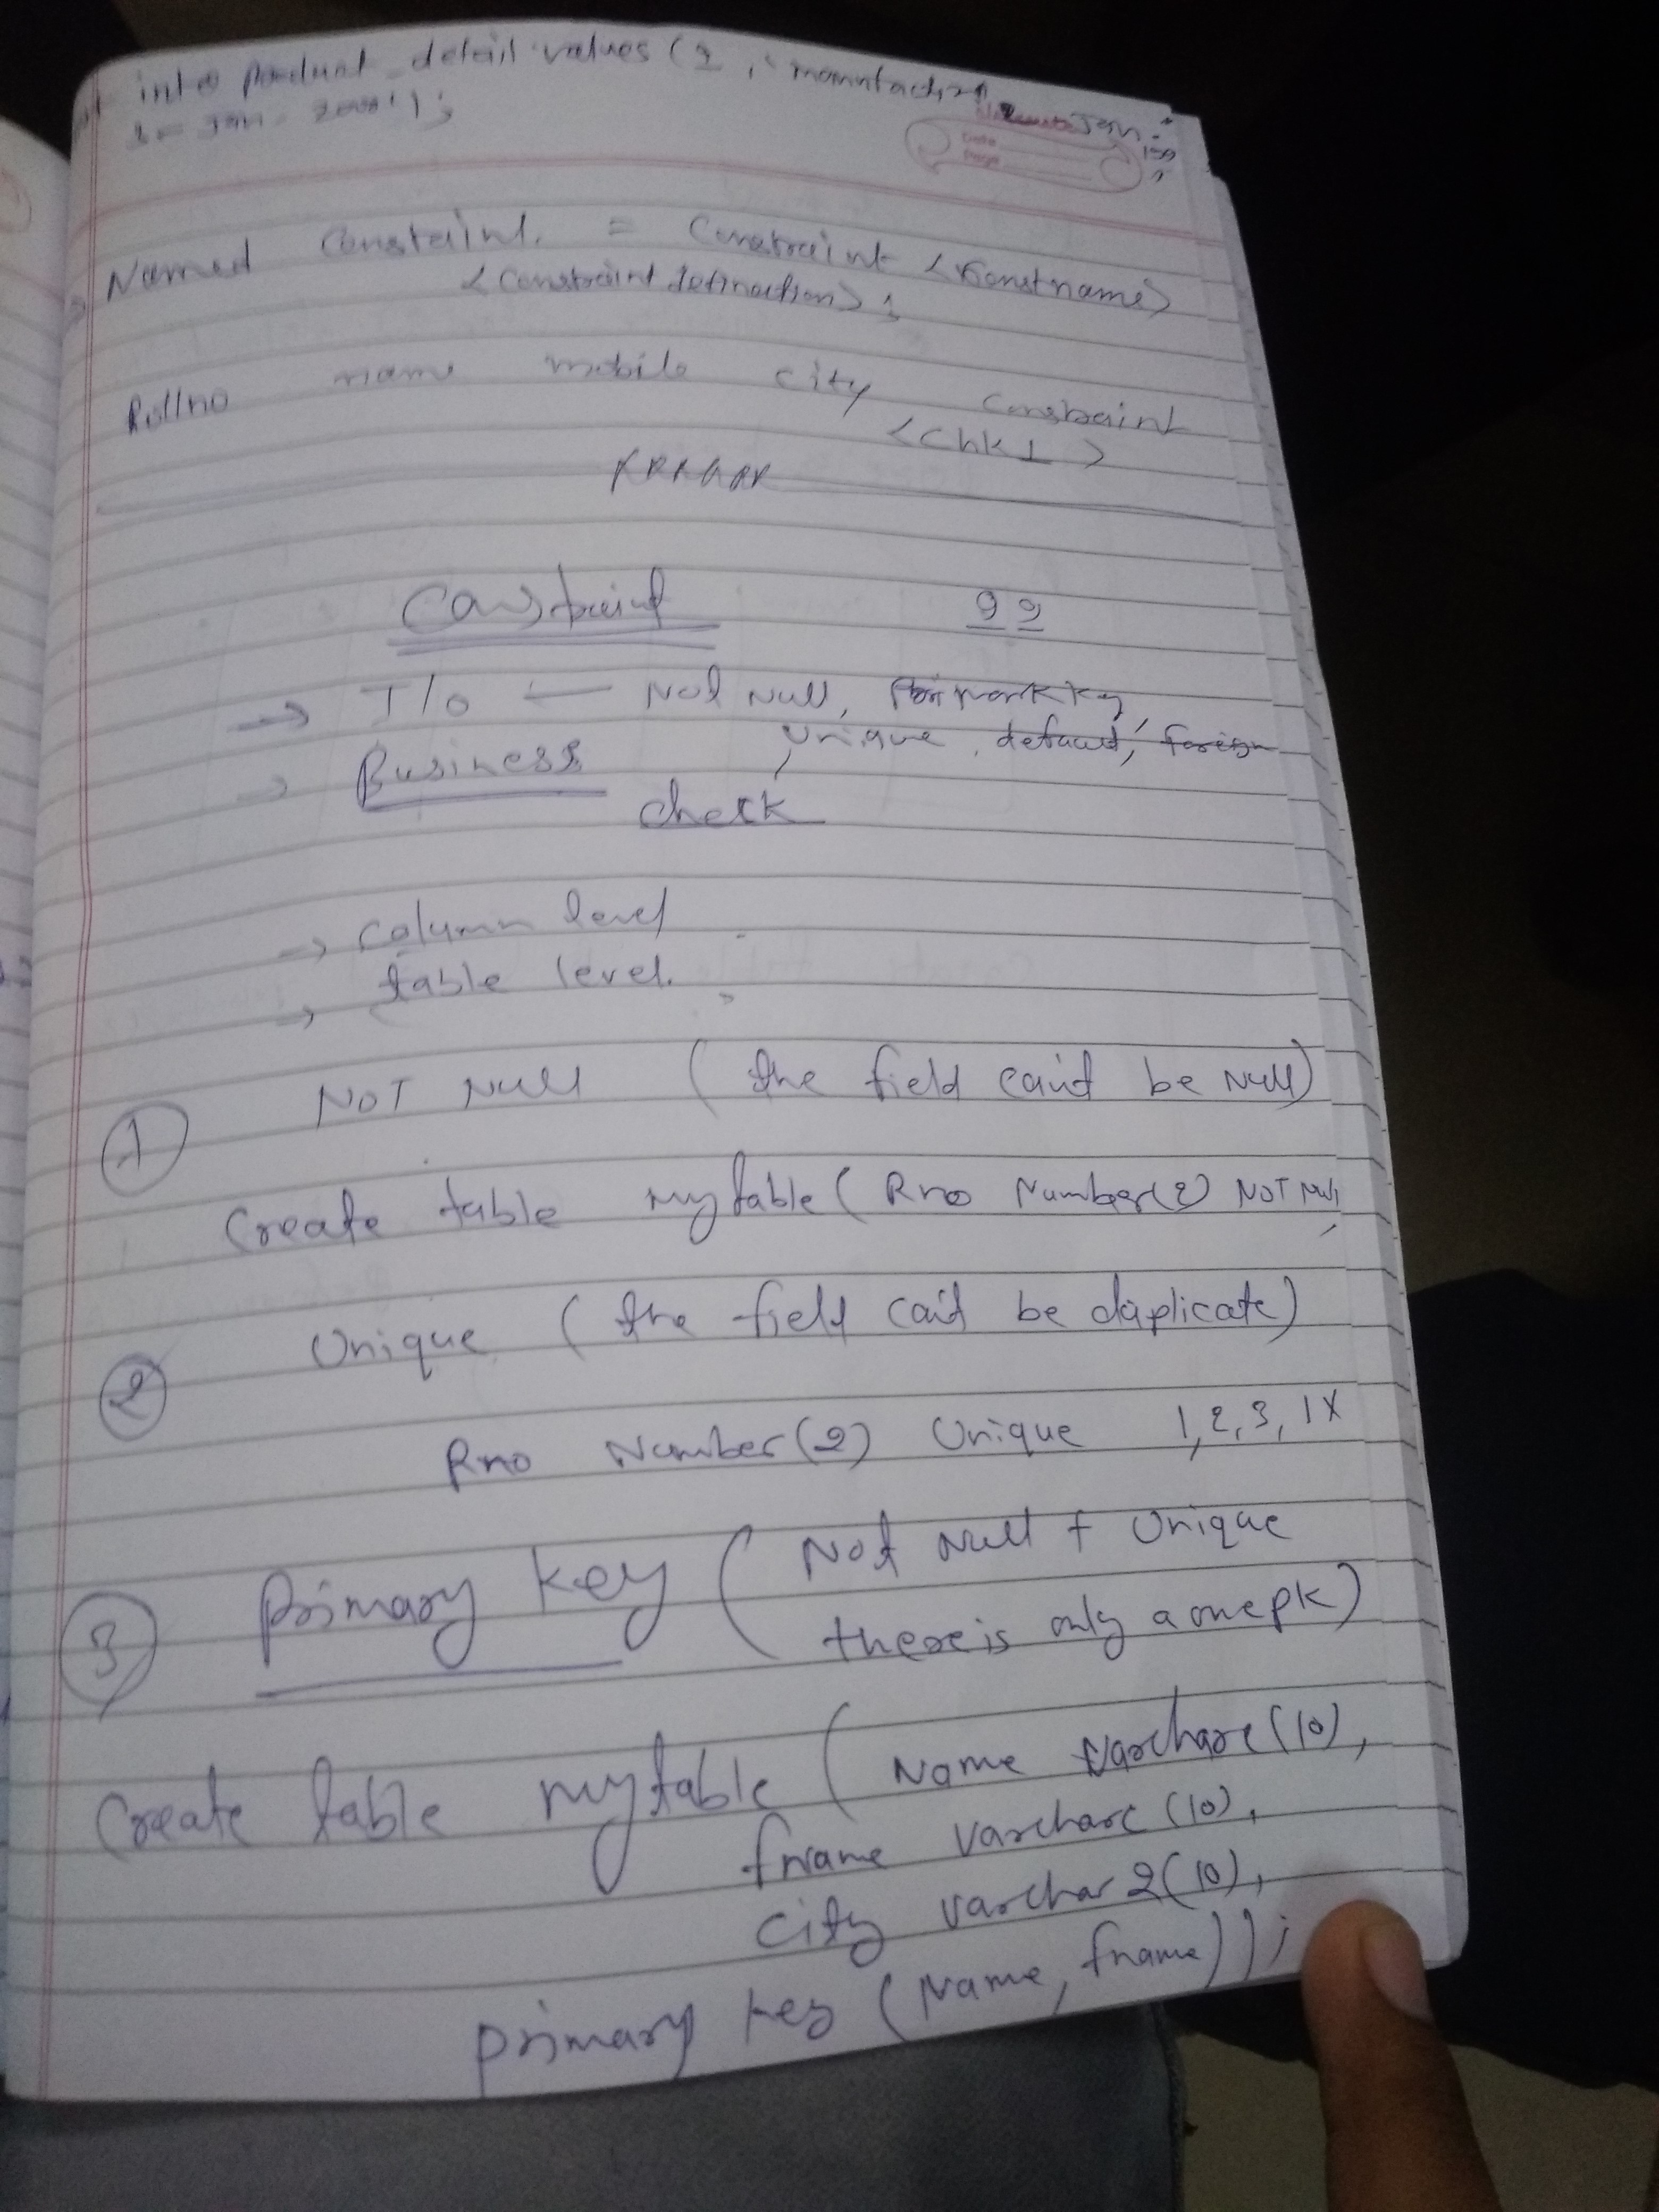 into product_detail values (2, '
Jan-
1 - Jan - 2008');
Date
Page
Named Constraint. = Constraint <Constname>
<Constraint defination>;
Rollno name mobile city Constraint
<Chk1>
Constraint 99
→ I/O — Not Null, Primary Key,
Unique, default, foreign
→ Business
check
→ Column level
→ table level.
① NOT Null (the field can't be Null)
Create table mytable( Rno Number(2) NOT Null,
② Unique (the field can't be duplicate)
Rno Number(2) Unique 1,2,3,1X
③ Primary key (Not Null + Unique
there is only a one pk)
Create table mytable (Name Varchar(10),
fname varchar(10),
City varchar2(10),
primary key (Name, fname));